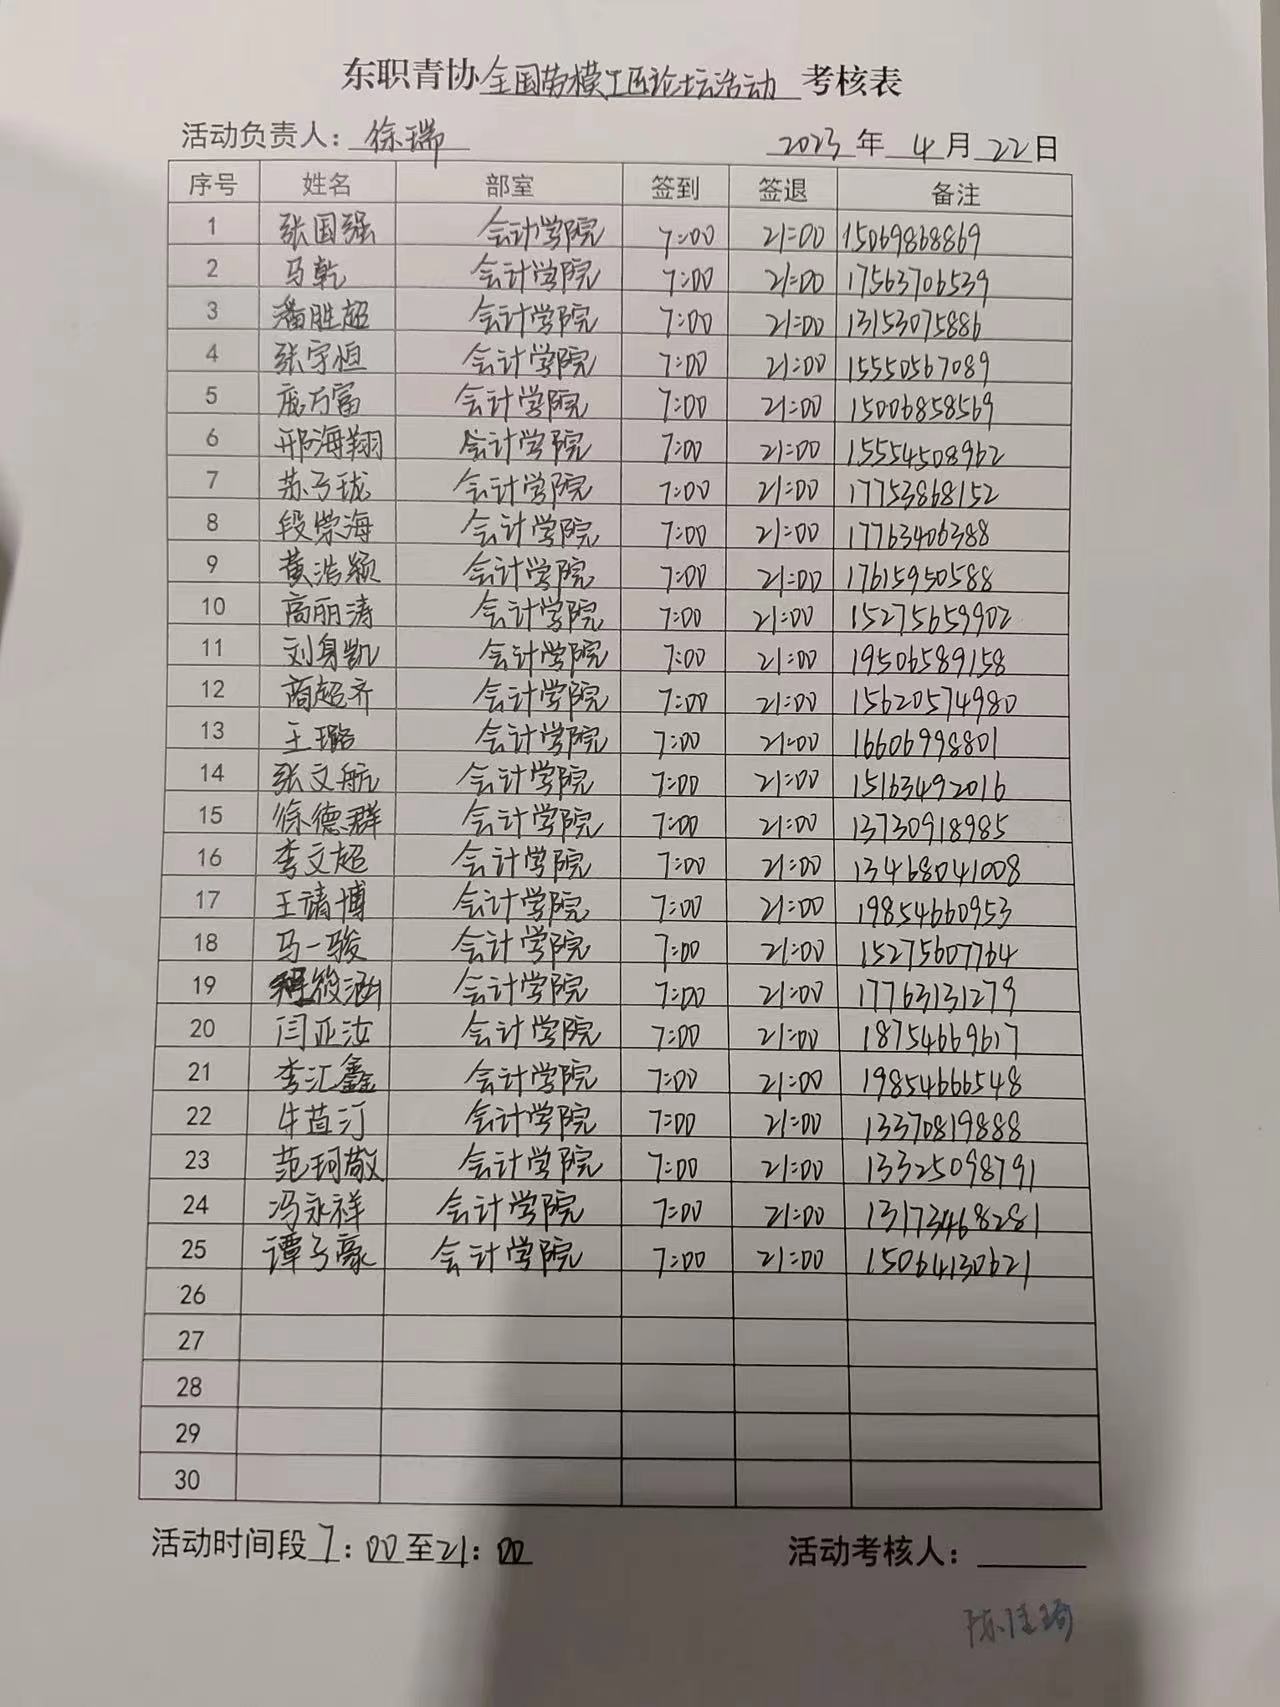 东职青协全国劳模工匠论坛活动考核表
活动负责人：徐瑞 2023年4月22日
序号 姓名 部室 签到 签退 备注
1 张国强 会计学院 7:00 21:00 15069868869
2 马乾 会计学院 7:00 21:00 17563706539
3 潘胜超 会计学院 7:00 21:00 13153075886
4 张宇恒 会计学院 7:00 21:00 15550567089
5 庞万富 会计学院 7:00 21:00 15006858569
6 邢海翔 会计学院 7:00 21:00 15554508962
7 苏子珑 会计学院 7:00 21:00 17753868152
8 段荣海 会计学院 7:00 21:00 17763406388
9 黄浩颖 会计学院 7:00 21:00 17615950588
10 高丽涛 会计学院 7:00 21:00 15275659902
11 刘身凯 会计学院 7:00 21:00 19506589158
12 商超齐 会计学院 7:00 21:00 15620574980
13 王璐 会计学院 7:00 21:00 16606998801
14 张文航 会计学院 7:00 21:00 15163492016
15 徐德群 会计学院 7:00 21:00 13730918985
16 李文超 会计学院 7:00 21:00 13468041008
17 王靖博 会计学院 7:00 21:00 19854660953
18 马一骏 会计学院 7:00 21:00 15275607764
19 程筱涵 会计学院 7:00 21:00 17763131279
20 闫正汝 会计学院 7:00 21:00 18754669617
21 李汇鑫 会计学院 7:00 21:00 19854666548
22 牛苗汀 会计学院 7:00 21:00 13370819888
23 范珂敬 会计学院 7:00 21:00 13325098791
24 冯永祥 会计学院 7:00 21:00 13173468281
25 谭子豪 会计学院 7:00 21:00 15064130621
26
27
28
29
30
活动时间段7:00至21:00 活动考核人：
陈佳琦